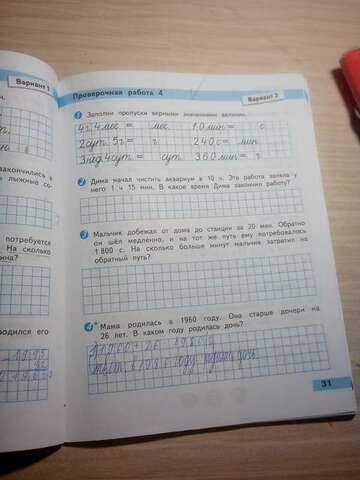 Вариант 1
Проверочная работа 4
Вариант 2
1 Заполни пропуски верными значениями величин.
4г. 4 мес = мес 10 мин = с
2 сут. 5 г = г. 240 с = мин
3 нед. 4 сут = сут 360 мин = г
2 Дима начал чистить аквариум в 10 ч. Эта работа заняла у
него 1 ч 15 мин. В какое время Дима закончил работу?
закончились в
лыжные со-
3 Мальчик добежал от дома до станции за 20 мин. Обратно
он шёл медленно, и на тот же путь ему потребовалось
1 800 с. На сколько больше минут мальчик затратил на
обратный путь?
потребуется
На сколько
4* Мама родилась в 1960 году. Она старше дочери на
26 лет. В каком году родилась дочь?
родился его
году родила дочь.
31